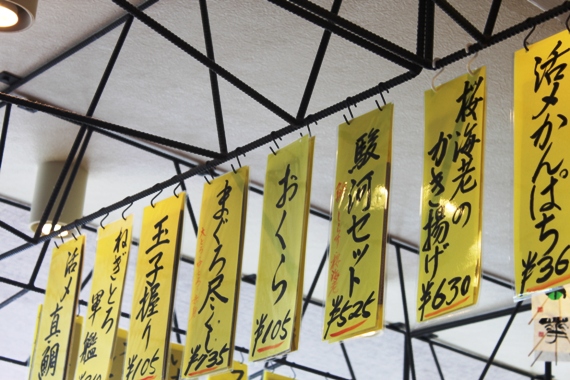 活〆かんぱち
¥36
桜海老の
かき揚げ
¥630
駿河セット
¥525
おくら
¥105
まぐろ尽くし
¥735
玉子握り
¥105
ねぎとろ
軍艦
活〆真鯛